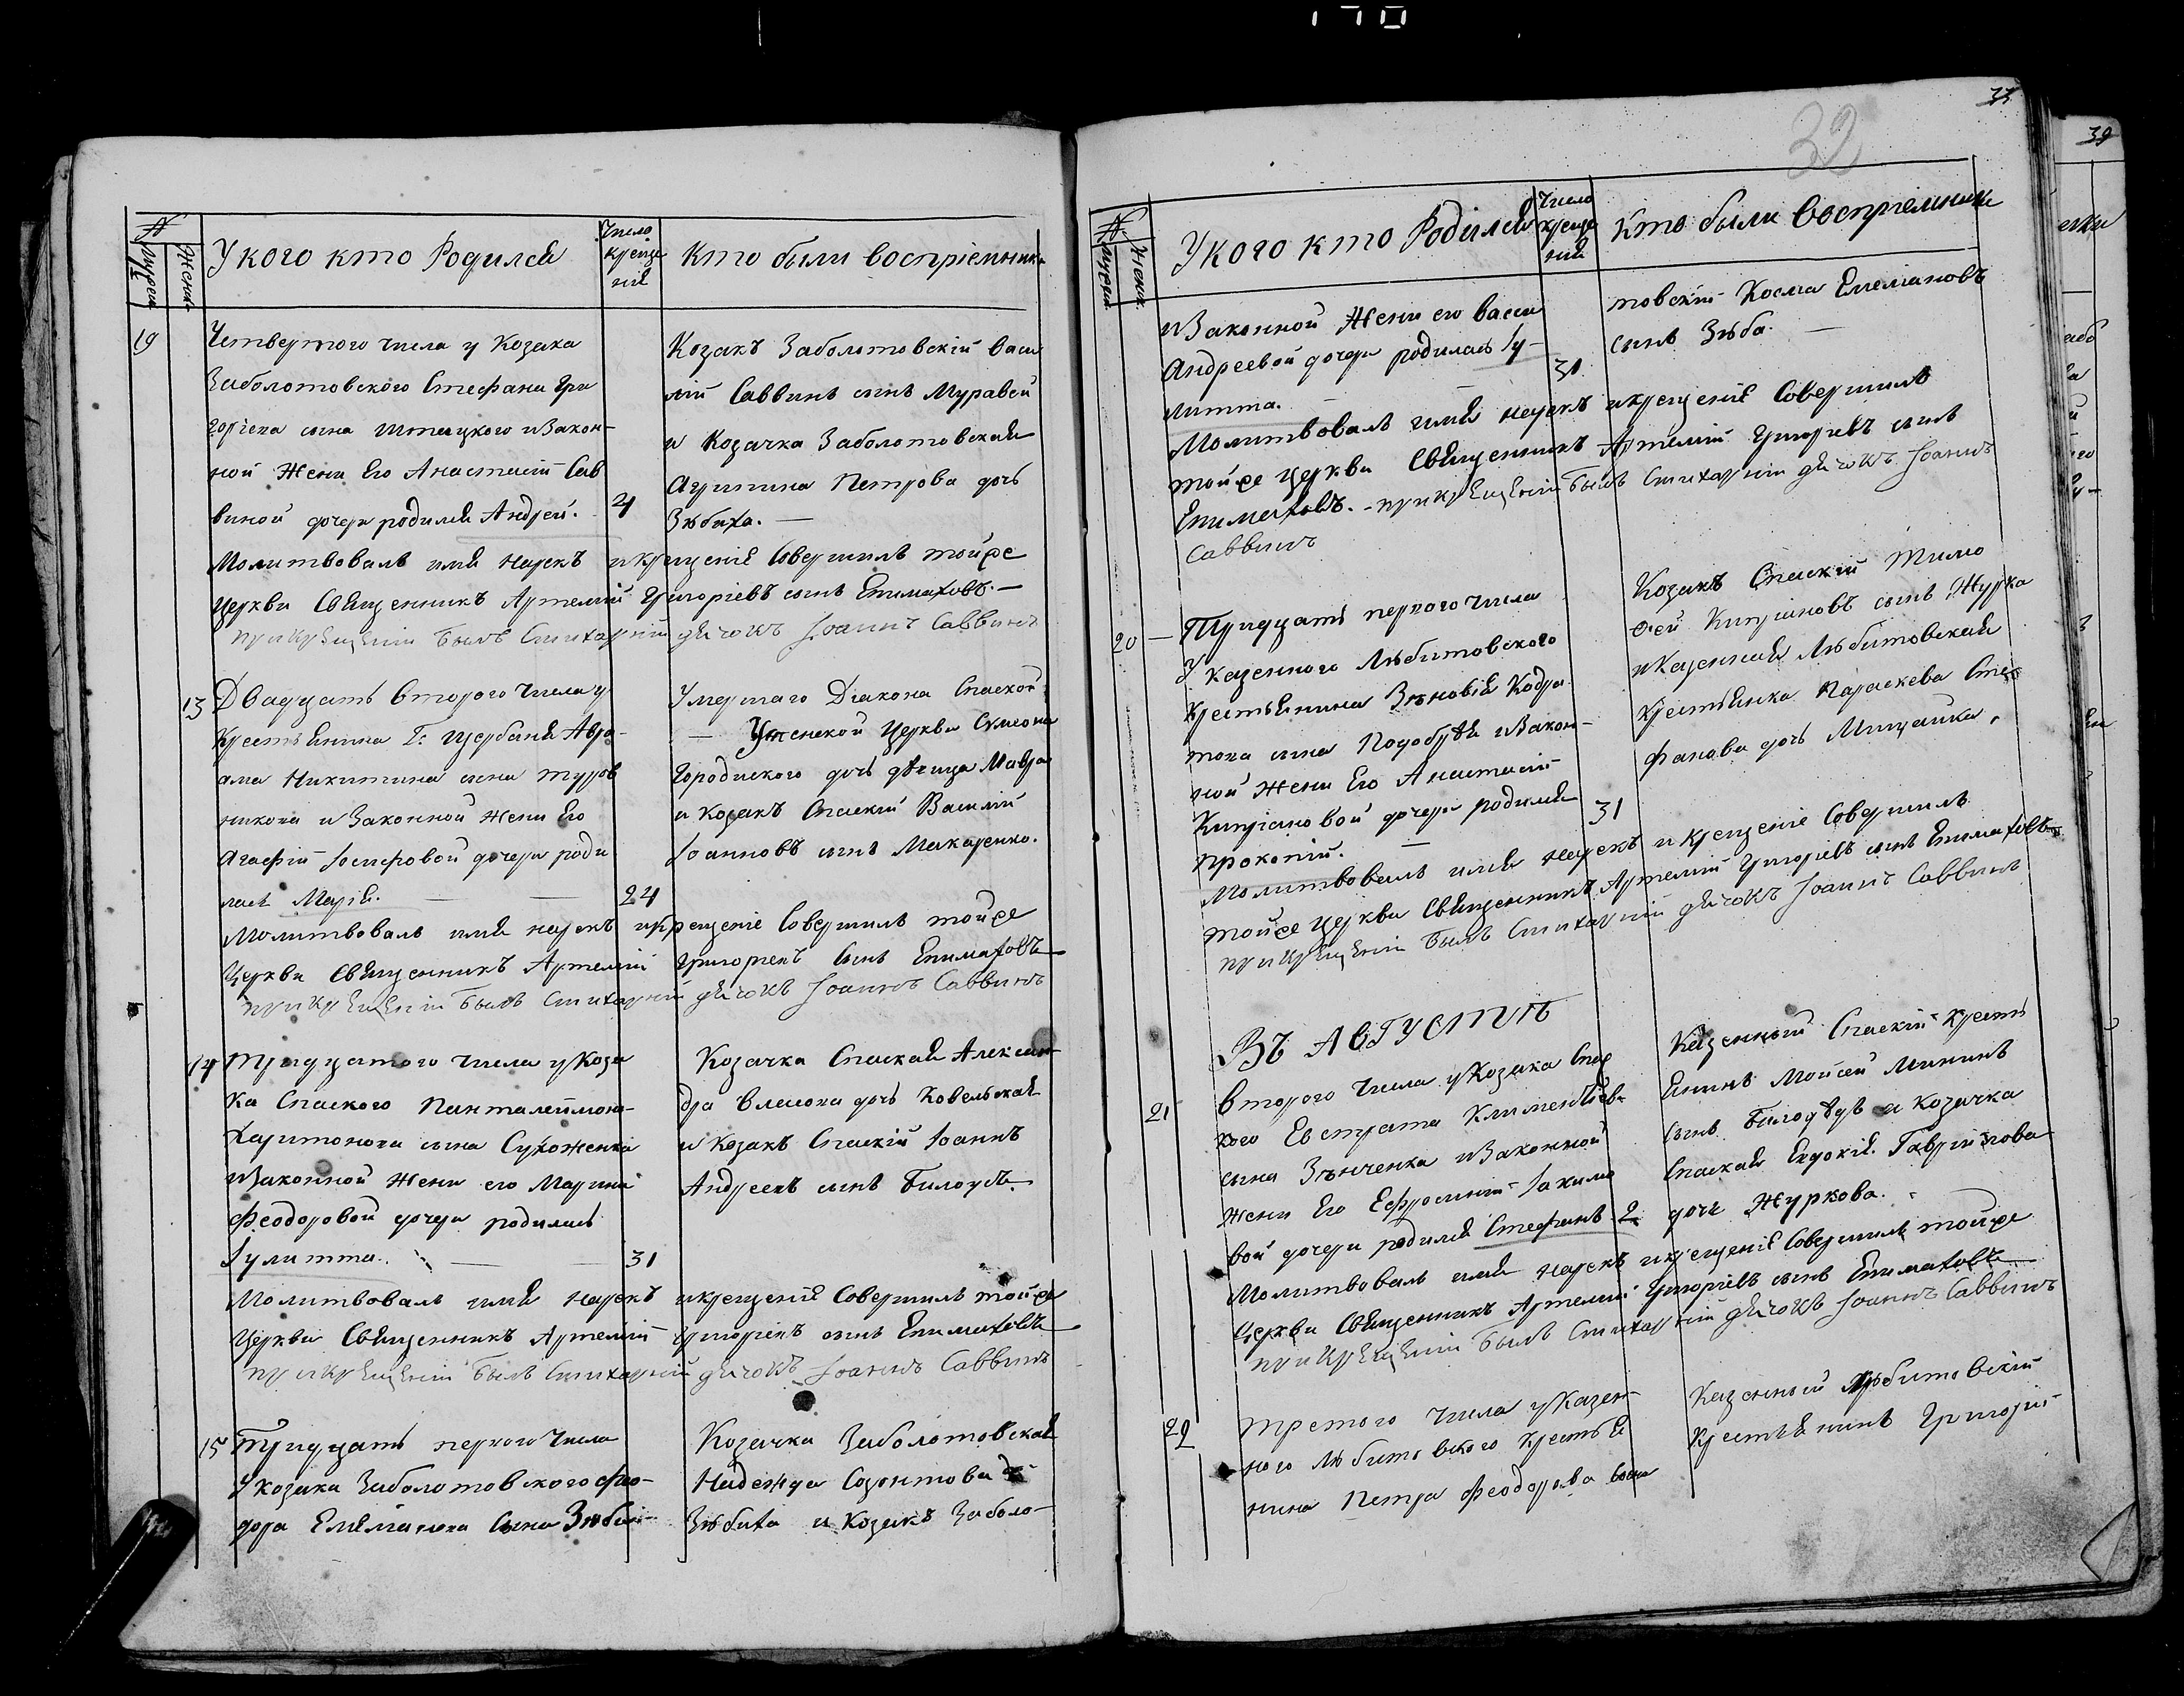 170
№
Мужеск
Женск
У кого кто Родился
Число
креще
нія
Кто были воспріемники
19
Четвертого числа у Козака
Заболотовского Стефана Гри
горіева сына и Закон-
ной Жени Его Анастасіи Сав
виной дочери родился Андрей.
4
Козакъ Заболотовскій Васи
лій Саввинъ сынъ Муравей
и Козачка Заболотовская
Агрипина Петрова дочь
Зюбиха. —
Молитвовалъ имя нарекъ и крещеніе Совершилъ тойже
Церкви Священникъ Артемій Григоріевъ сынъ Епимаховъ. —
при крещеніи былъ Стихарній дячокъ Іоаннъ Саввинъ
13
Двадцать второго числа у
Крестьянина Г: Щербаня Авра-
ама Никитина сына
никова и Законной Жени Его
Агафіи Іосифовой дочери роди
лась Марія. — —
24
Умершаго Діакона Спаской
— Успенской Церкви Симеона
Городиского дочь девица Мавра
и Козакъ Спаскій Василій
Іоанновъ сынъ Макаренко.
Молитвовалъ имя нарекъ и крещеніе Совершилъ тойже
Церкви Священникъ Артемій Григоріевъ Сынъ Епимаховъ
при крещеніи былъ Стихарній дячокъ Іоаннъ Саввинъ
14
Тридцатого числа у Коза
ка Спаского Панталеимона
Харитонова сына Сухоженка
и Законной Жени его Марини
Феодоровой дочери родилась
Іулитта. —
31
Козачка Спаская Алексан-
дра Власова дочь Ковельская
и Козакъ Спаскій Іоаннъ
Андреевъ сынъ Билоусъ.
Молитвовалъ имя нарекъ и крещеніе Совершилъ тойже
Церкви Священникъ Артемій Григоріевъ сынъ Епимаховъ
при крещеніи былъ Стихарній дячокъ Іоаннъ Саввинъ
15
Тридцать первого Числа
У козака Заболотовского Фео-
дора Емеліанова Сына Зюби
Козачка Заболотовская
Надежда Созонтова
Зюбиха и Козакъ Заболо-
33
32
№
Мужеск
Женск
У кого кто Родился
Число
креще
нія
Кто были воспріемники
и Законной Жени его Васси
Андреевой дочери родилась Іу-
литта. —
31
товскій Косма Емеліановъ
сынъ Зюба. —
Молитвовалъ имя нарекъ и крещеніе Совершилъ
тойже Церкви Священникъ Артемій Григоріевъ сынъ
Епимаховъ. - при крещеніи былъ Стихарній дячокъ Іоаннъ
Саввинъ
20 —
Тридцать первого числа
У казенного Любитовского
Крестьянина Зѣновія Кодра
това сына Подобутя и Закон-
ной Жени Его Анастасіи
Кипріановой дочери родился
Прокопій. —
31
Козакъ Спаскій Тимо
фей Кипріановъ сынъ Журка
и Казенная Любитовская
Крестьянка Параскева Сте
фанова дочь
Молитвовалъ имя нарекъ и крещеніе Совершилъ
тойже Церкви Священникъ Артемій Григоріевъ сынъ Епимаховъ
при крещеніи былъ Стихарній дячокъ Іоаннъ Саввинъ
Въ АВГУСТѢ
21
Второго Числа у Козака Спас
кого Евстрата Климентіева
сына Зѣнченка и Законной
Жени Его Ефросиніи Іакимо
вой дочери родился Стефанъ
2
Казенный Спаскій Кресть
янинъ Моисей Мининъ
сынъ Билодѣдъ и козачка
Спаская Евдокія Гавріилова
дочь Журкова.
Молитвовалъ имя нарекъ и крещеніе Совершилъ тойже
Церкви Священникъ Артемій Григоріевъ сынъ Епимаховъ
при крещеніи былъ Стихарній дячокъ Іоаннъ Саввинъ
22
Третого Числа у Казен-
ного Любитовского Крестья
нина Петра Феодорова сына
Казенный Любитовскій
Крестьянинъ Григорій
39